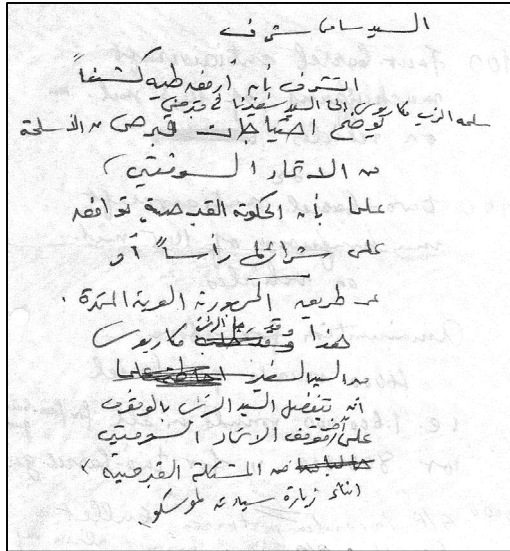 السيد سامى شرف
اتشرف بأن ارفق طيه كشفاً
سلمه الرئيس مكاريوس الى السيد سفيرنا فى قبرص
توضح احتياجات قبرص من الأسلحة
من الاتحاد السوفيتى
علما بأن الحكومة القبرصية توافق
على شرائها رأساً أو
عن طريق الجمهورية العربية المتحدة .
هذا وقد رجا الرئيس مكاريوس
من السيد السفير
أن يتفضل السيد الرئيس بالوقوف
على موقف الاتحاد السوفيتى
من المشكلة القبرصية
اثناء زيارة سيادته لموسكو